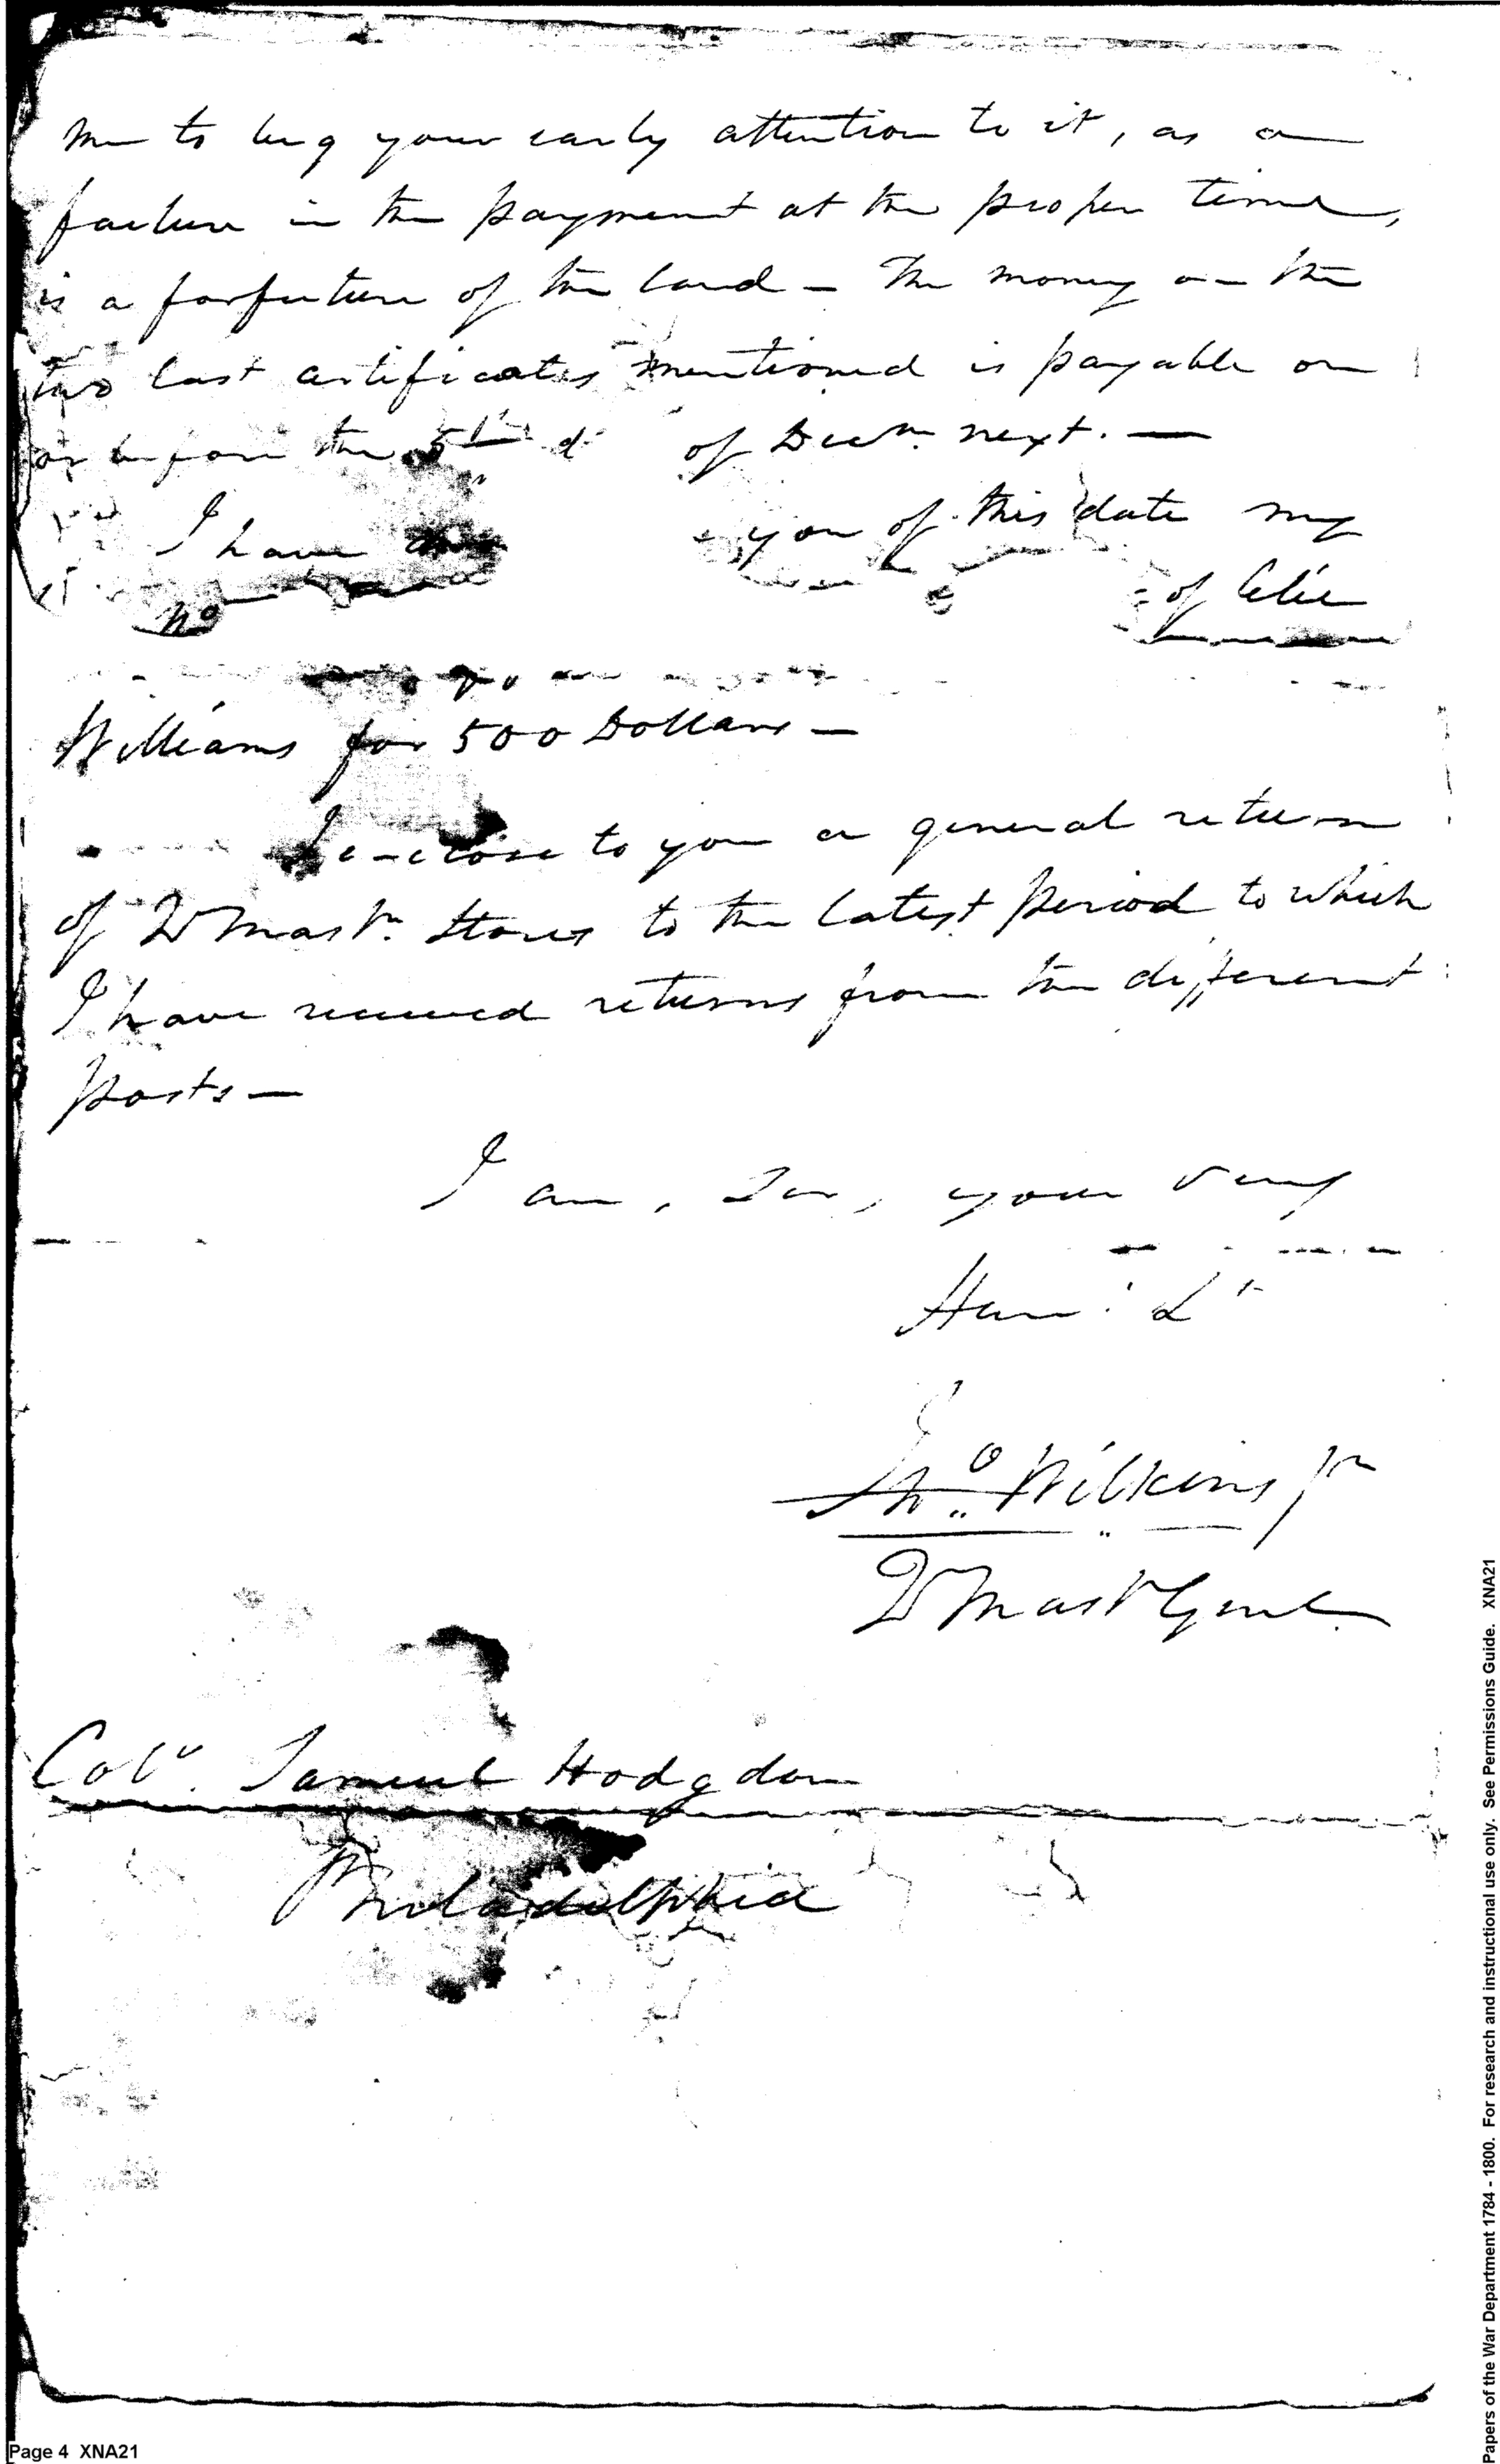 me to beg your early attention to it, as a
failure in the payment at the proper time,
is a forfeiture of the land – The money on the
two last certificates mentioned is payable on
or before the 5th d of Decem next. —
I have you of this date my
No of
Williams for 500 Dollars —
I enclose to you a general return
of QrMastr. Stores to the latest period to which
I have received returns from the different
posts —
I am, Sir, your very
Hum: St
Jno Wilkins Jr
QrMastrGenl.
Colo. Samuel Hodgdon
Philadelphia
Page 4 XNA21
Papers of the War Department 1784 - 1800. For research and instructional use only. See Permissions Guide. XNA21